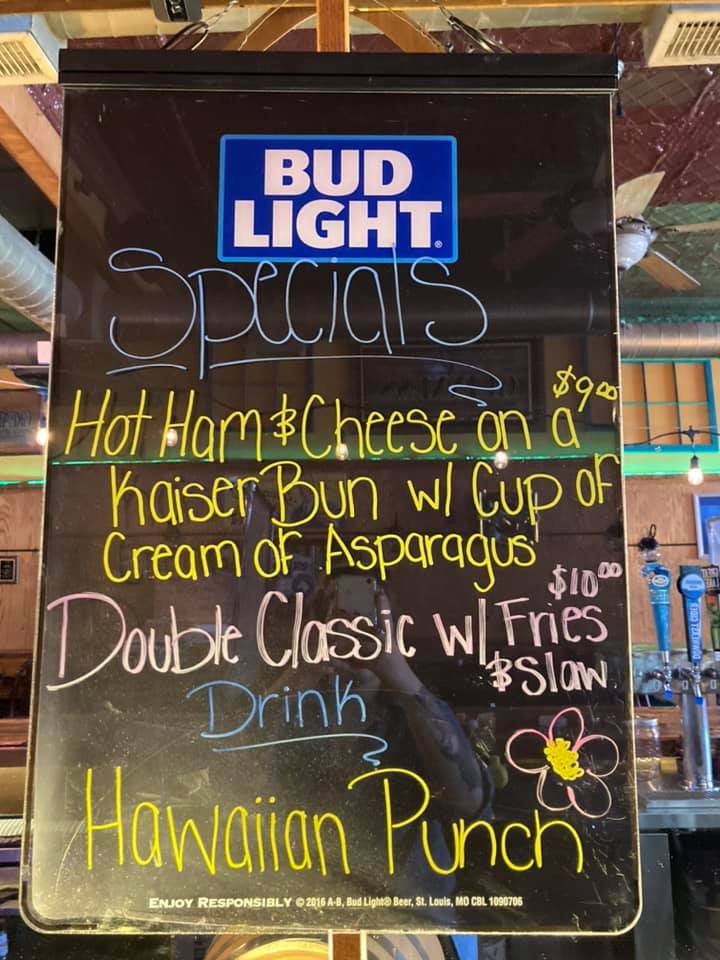 BUD
LIGHT
Specials
$9.00
Hot Ham & Cheese on a
Kaiser Bun w/ Cup of
Cream of Asparagus
$10.00
Double Classic w/ Fries
& Slaw
Drink
Hawaiian Punch
ENJOY RESPONSIBLY © 2016 A-B, Bud Light® Beer, St. Louis, MO CBL 1090706